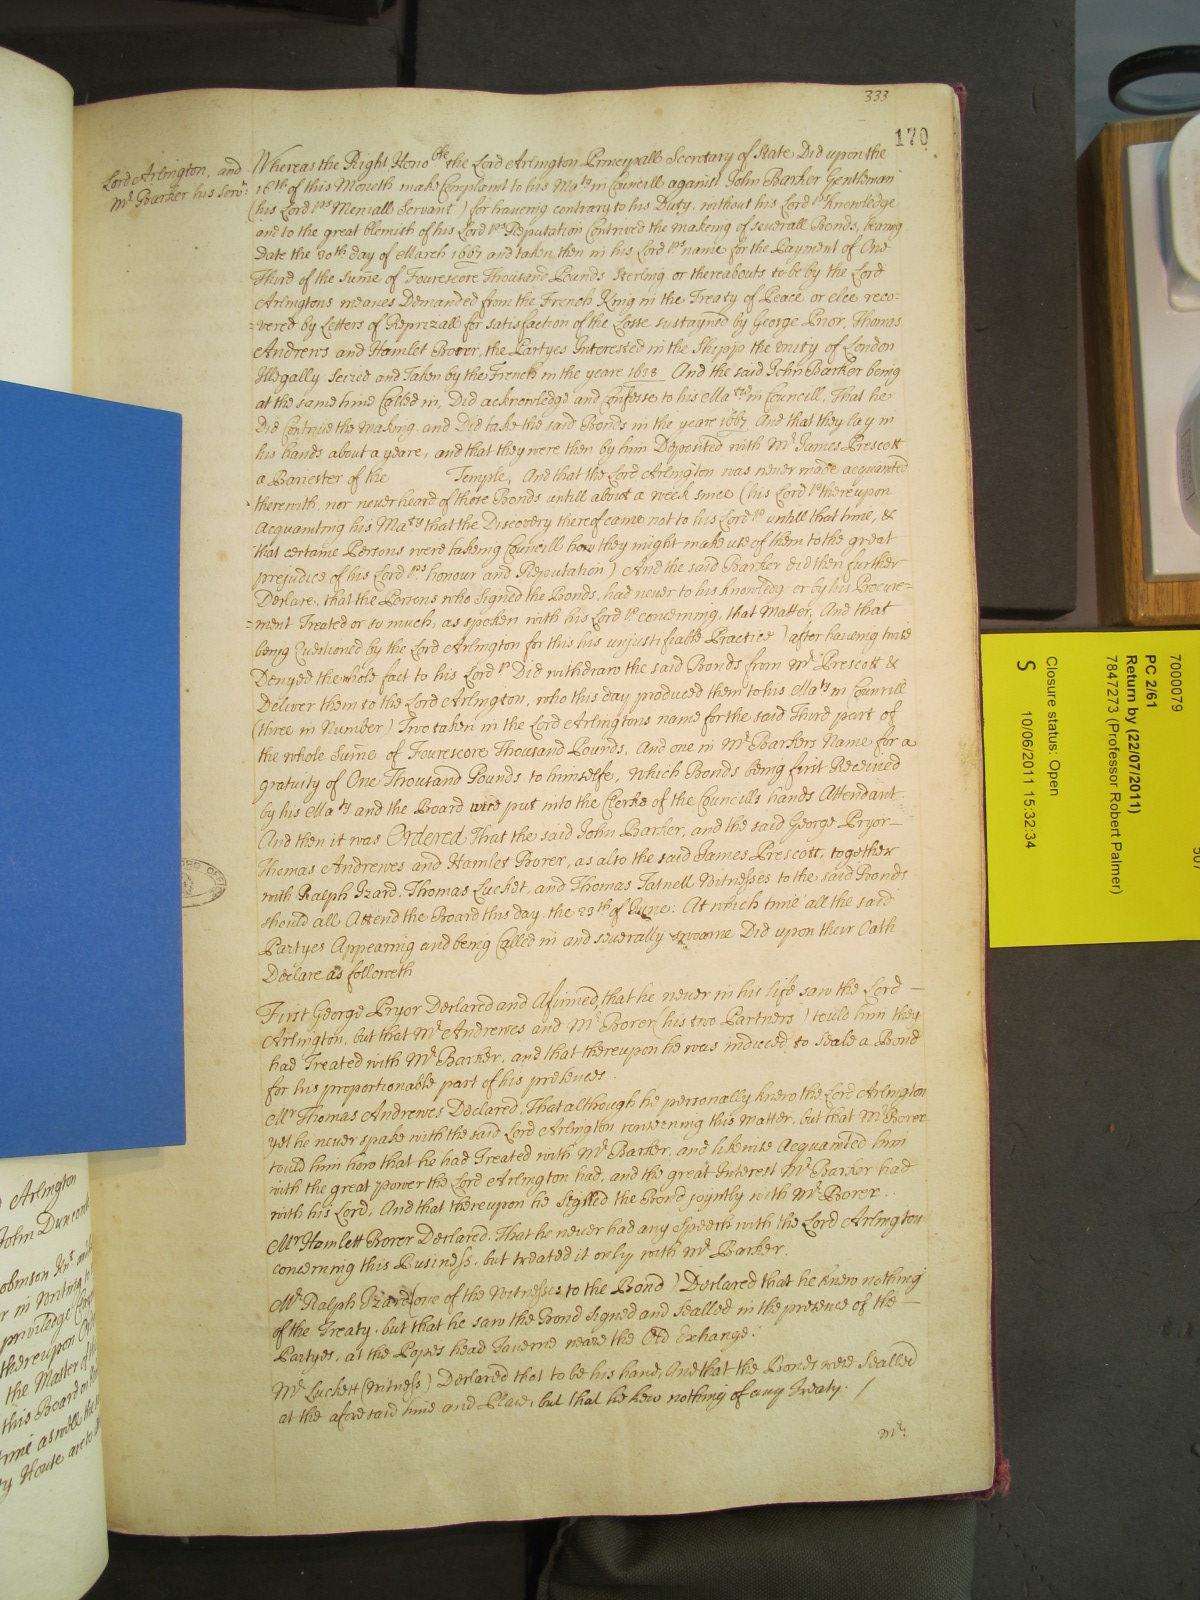 333
170
Lord Arlington, and
Mr. Barker his Servt:
Whereas the Right Honoble the Lord Arlington Principall Secretary of State Did upon the
16th of this Moneth make Complaint to his Maty in Councill against John Barker Gentleman
(his Lordps Meniall Servant) for haveing contrary to his Duty, without his Lordps knowledge
and to the great blemish of his Lordps Reputation Contrived the makeing of severall Bonds, bearing
Date the 20th day of March 1667 and taken then in his Lordps name for the Payment of One
Third of the Sume of Fourescore Thousand Pounds Sterling or thereabouts to be by the Lord
Arlingtons meanes Demanded from the French King in the Treaty of Peace or else reco=
=vered by Letters of Reprizall for satisfaction of the Losse sustayned by George Prior, Thomas
Andrews and Hamlet Borer, the Partyes Interessed in the Shipp the Unity of London
Illegally Seized and Taken by the French in the yeare 1658 And the said John Barker being
at the same time Called in, Did acknowledge and Confesse to his Maty in Councill, That he
Did Contrive the making, and Did take the said Bonds in the yeare 1667 And that they lay in
his hands about a yeare, and that they were then by him Deposited with Mr. James Prescott
a Barrester of the Temple, And that the Lord Arlington was never made acquanted
therewith, nor never heard of those Bonds untill about a week since (his Lordp thereupon
Acquainting his Maty that the Discovery thereof came not to his Lordp untill that time, &
that certaine Persons were takeing Councill how they might make use of them to the great
prejudice of his Lordps honour and Reputation) And the said Barker did then further
Declare, that the Persons who Signed the Bonds, had never to his knowledg or by his Procure=
=ment Treated or so much, as spoken with his Lordp concerning, that Matter, And that
being Questioned by the Lord Arlington for this his unjustifiable Practice) after haveing twice
Denyed the whole fact to his Lordp Did withdraw the said Bonds from Mr. Prescott &
Deliver them to the Lord Arlington, who this day produced them to his Maty in Councill
(three in Number) Two taken in the Lord Arlingtons name for the said Third part of
the whole Sume of Fourescore Thousand Pounds, And one in Mr. Barkers Name for a
gratuity of One Thousand Pounds to himselfe, Which Bonds being first Received
by his Maty and the Board were put into the Clerke of the Councills hands Attendant
And then it was Ordered That the said John Barker, and the said George Pryor
Thomas Andrewes and Hamlet Borer, as also the said James Prescott, together
with Ralph Izard, Thomas Lucket, and Thomas Tatnell Witnesses to the said Bonds
should all Attend the Board this day the 23th of June: At which time all the said
Partyes Appearing and being Called in and severally sworne Did upon their Oath
Declare as followeth
First George Pryor Declared and Afirmed, that he never in his life saw the Lord
Arlington, but that Mr. Andrewes and Mr. Borer (his two Partners) tould him they
had Treated with Mr. Barker, and that thereupon he was induced, to Seale a Bond
for his proportionable part of his pretences.
Mr. Thomas Andrewes Declared, That although he personally knew the Lord Arlington
yet he never spake with the said Lord Arlington concerning this Matter, but that Mr. Borer
tould him how that he had Treated with Mr. Barker, and likewise Acquainted him
with the great power the Lord Arlington had, and the great Interest Mr. Barker had
with his Lord, And that thereupon he Signed the Bond joyntly with Mr. Borer.
Mr. Hamlett Borer Declared, That he never had any Speech with the Lord Arlington
concerning this Business, but treated it only with Mr. Barker.
Mr. Ralph Izard (one of the Witnesses to the Bond) Declared that he knew nothing
of the Treaty, but that he saw the Bond Signed and Sealled in the presence of the
Partyes, at the Popes head Taverne neare the Old Exchange.
Mr. Luckett (Witness) Declared that to be his hand, And that the Bonds were Sealled
at the aforesaid time and Place, but that he kew nothing of any Treaty. /
Mr.
Arlington
John Duncomb
obinson Knt
r in writing
priviledge
thereupon
the Master of
this Board
time as well
House are to
7000079
PC 2/61
Return by (22/07/2011)
7847273 (Professor Robert Palmer)
Closure status: Open
S
10/06/2011 15:32:34